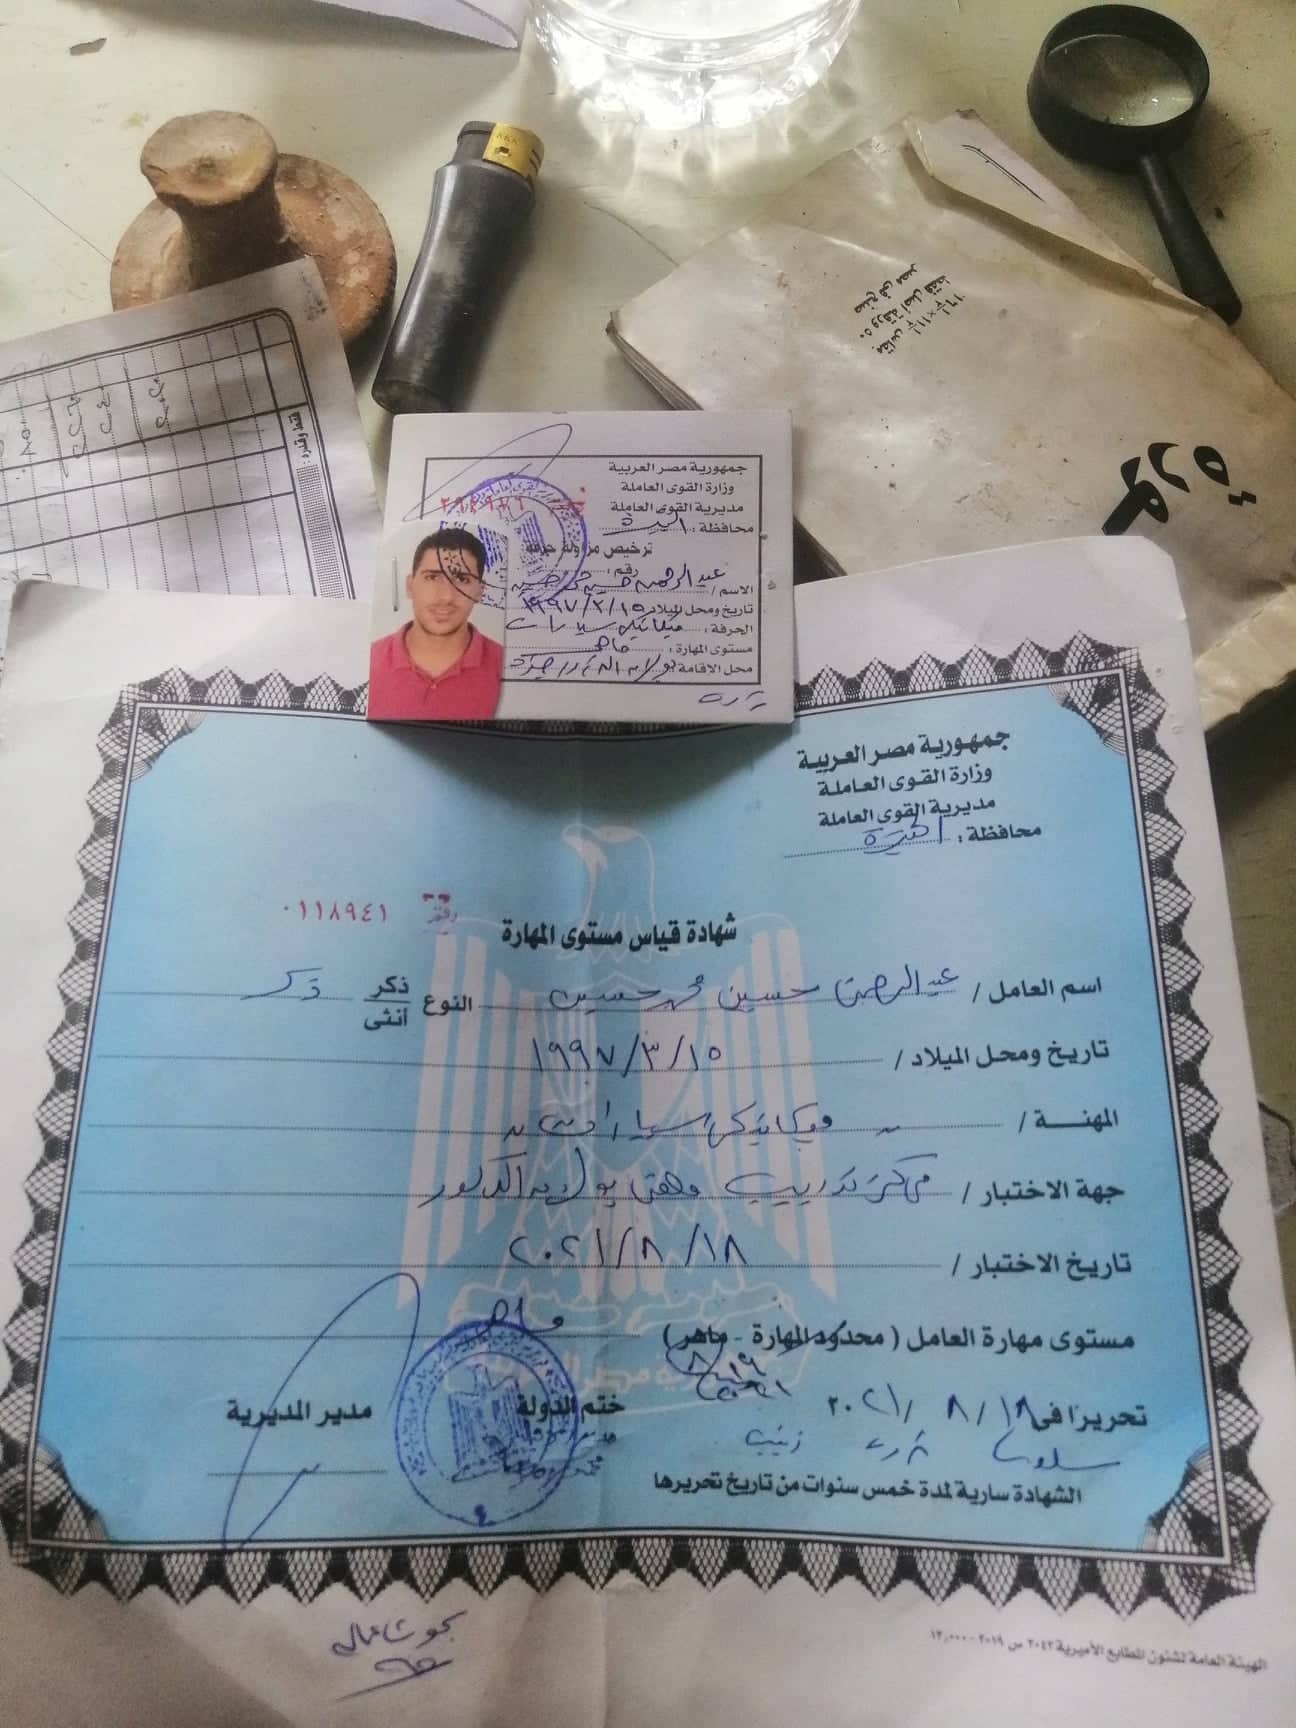 فقط وقدره
١٦ ١/٢ × ١١ ١/٢ مقاس
٥٠ ورقة أصل فقط
صنع فى مصر
جمهورية مصر العربية
وزارة القوى العاملة
مديرية القوى العاملة
محافظة : الجيزة
٢٩٤٩٧٦
ترخيص مزاولة حرفة
رقم :
الاسم / عبد الرحمن حسين محمد حسين
تاريخ ومحل الميلاد ١٩٩٧/٣/١٥
الحرفة : ميكانيكى سيارات
مستوى المهارة : ماهر
محل الاقامة بولاق الدكرور جيزة
جمهورية مصر العربية
وزارة القوى العاملة
مديرية القوى العاملة
محافظة : الجيزة
٠١١٨٩٤١
شهادة قياس مستوى المهارة
اسم العامل / عبد الرحمن حسين محمد حسين النوع ذكر أنثى ذكر
تاريخ ومحل الميلاد / ١٩٩٧/٣/١٥
المهنــة / ميكانيكى سيارات
جهة الاختبار / مركز تدريب مهنى بولاق الدكرور
تاريخ الاختبار / ٢٠٢١/٨/١٨
مستوى مهارة العامل ( محدود المهارة - ماهر ) ماهر
تحريرًا فى ١٨ / ٨ / ٢٠٢١
ختم الدولة
مدير المديرية
الشهادة سارية لمدة خمس سنوات من تاريخ تحريرها
الهيئة العامة لشئون المطابع الأميرية ٢٠٤٢ س ٢٠١٩ - ١٢,٠٠٠